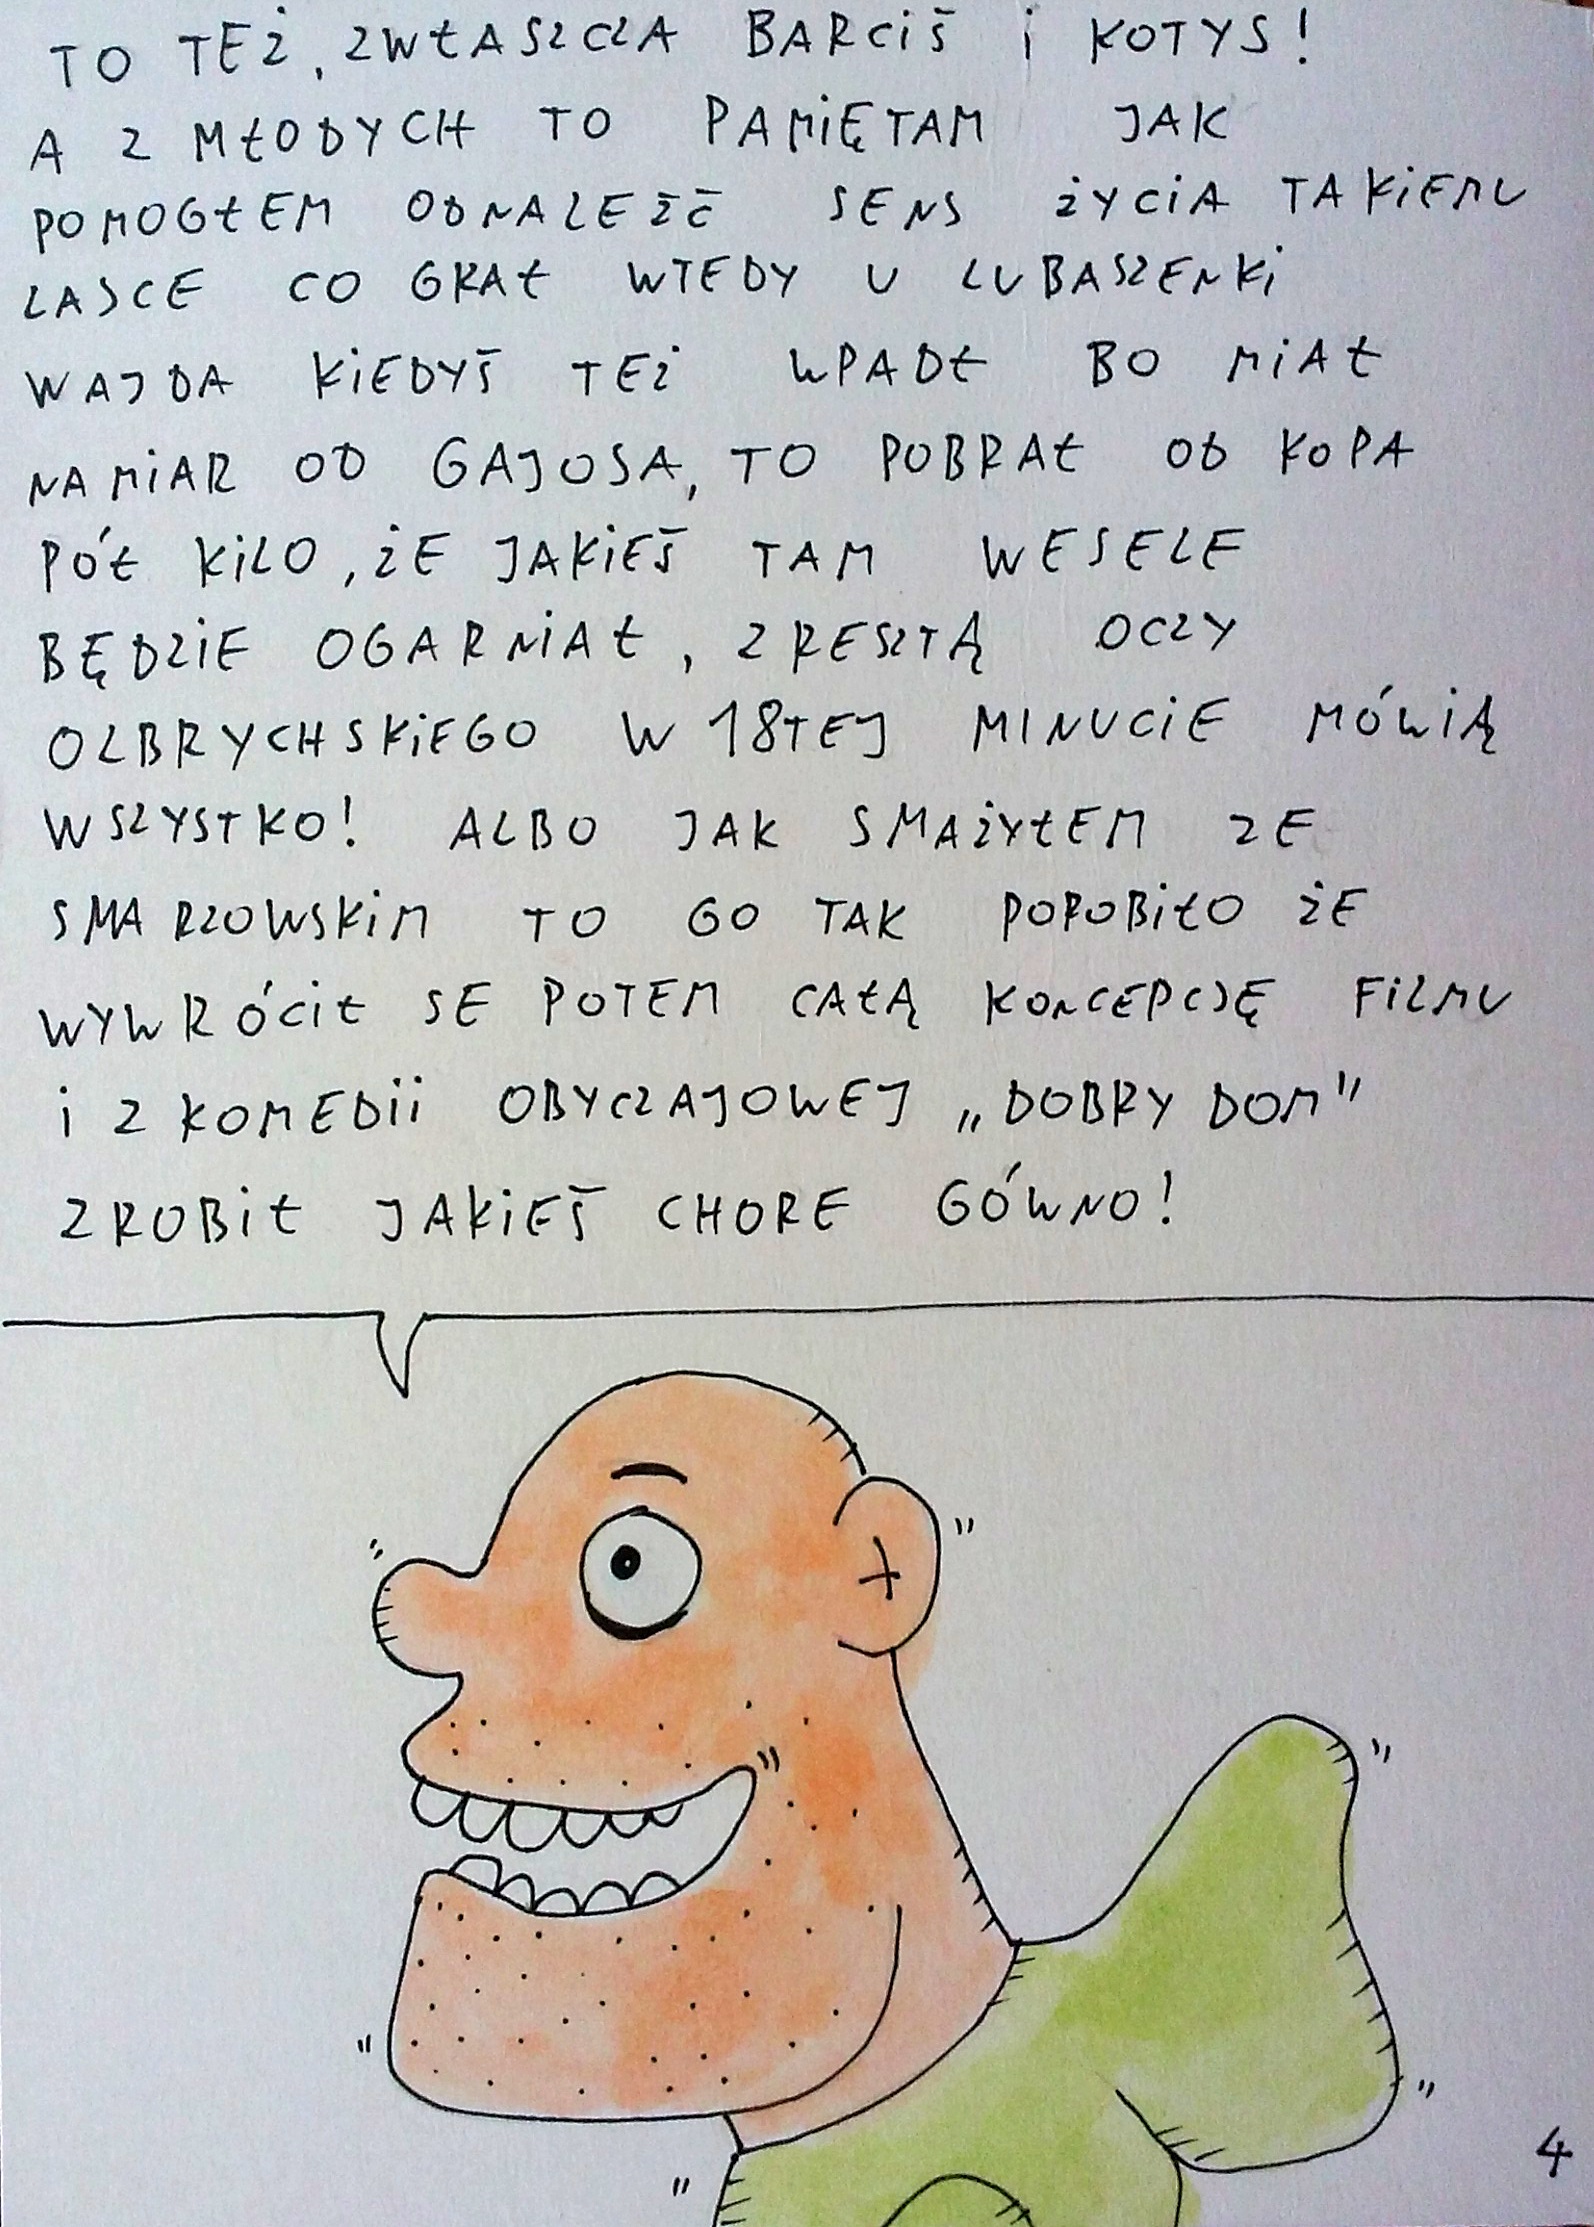 TO TEŻ, ZWŁASZCZA BARCIŚ i KOTYS!
A Z MŁODYCH TO PAMIĘTAM JAK
POMOGŁEM ODNALEŹĆ SENS ŻYCIA TAKIEMU
LASCE CO GRAŁ WTEDY U LUBASZENKI
WAJDA KIEDYŚ TEŻ WPADŁ BO MIAŁ
NAMIAR OD GAJOSA, TO POBRAŁ OD KOPA
PÓŁ KILO, ŻE JAKIEŚ TAM WESELE
BĘDZIE OGARNIAŁ, ZRESZTĄ OCZY
OLBRYCHSKIEGO W 18TEJ MINUCIE MÓWIĄ
WSZYSTKO! ALBO JAK SMAŻYŁEM ZE
SMARZOWSKIM TO GO TAK POROBIŁO ŻE
WYWRÓCIŁ SE POTEM CAŁĄ KONCEPCJĘ FILMU
i Z KOMEDII OBYCZAJOWEJ „DOBRY DOM"
ZROBIŁ JAKIEŚ CHORE GÓWNO!
4